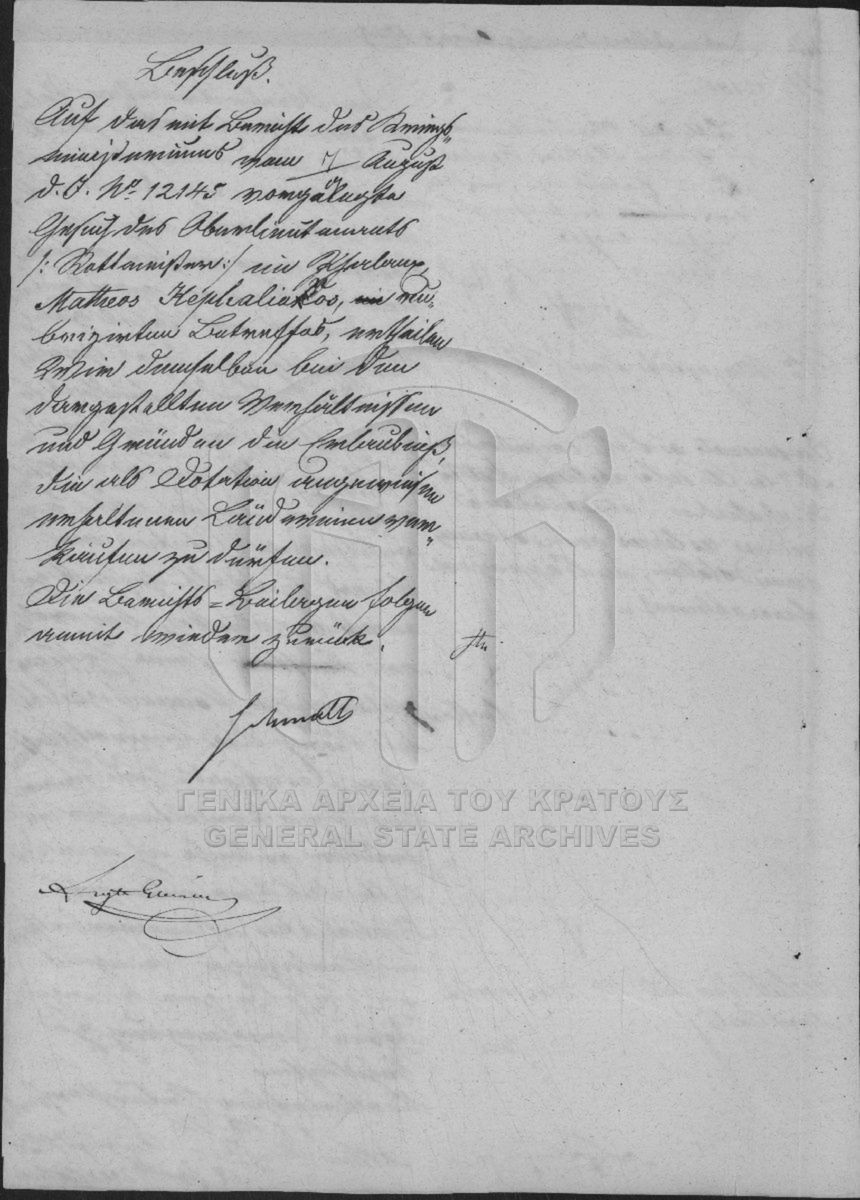 Beschluß.
Auf das mit Bericht des Kriegs-
ministeriums vom 7/ August
d. J. No 12145 vorgelegte
Gesuch des Oberlieutenants
/: Rottmeister :/ im Phalanx,
Matheos Kephaliakos, ru-
brizirten Betreffes, ertheilen
Wir demselben bei den
dargestellten Verhältnissen
und Gründen die Erlaubniß,
die als Dotation angewiesen
erhaltenen Ländereien ver-
kaufen zu dürfen.
Die Berichts-Beilagen folgen
anmit wieder zurück.
ΓΕΝΙΚΑ ΑΡΧΕΙΑ ΤΟΥ ΚΡΑΤΟΥΣ
GENERAL STATE ARCHIVES